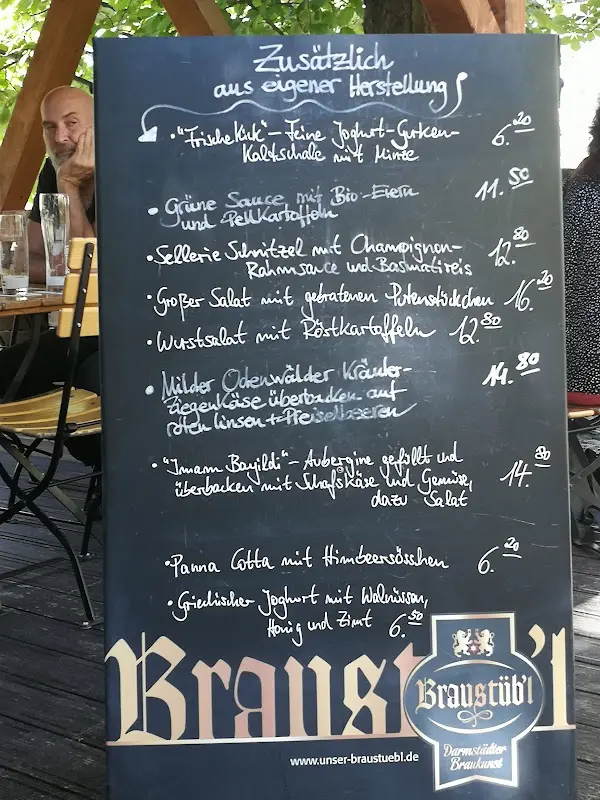 Zusätzlich
aus eigener Herstellung
• "Frische Kick" - Feine Joghurt-Gurken- 6.20
Kaltschale mit Minze
• Grüne Sauce mit Bio-Eiern 11.50
und Pellkartoffeln
• Sellerie Schnitzel mit Champignon- 12.80
Rahmsauce und Basmatireis
• Großer Salat mit gebratenen Putenstückchen 16.20
• Wurstsalat mit Röstkartoffeln 12.80
• Milder Odenwälder Kräuter- 14.80
Ziegenkäse überbacken auf
roten Linsen + Preiselbeeren
• "Imam Bayildi" - Aubergine gefüllt und 14.80
überbacken mit Schafskäse und Gemüse,
dazu Salat
• Panna Cotta mit Himbeersösschen 6.20
• Griechischer Joghurt mit Walnüssen,
Honig und Zimt 6.50
Braustüb'l
Braustüb'l
Darmstädter
Braukunst
www.unser-braustuebl.de